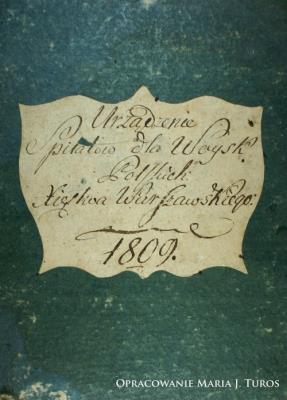 Urządzenie
Szpitalów dla Woysk
Polskich
Xięstwa Warszawskiego:
1809.
Opracowanie Maria J. Turos